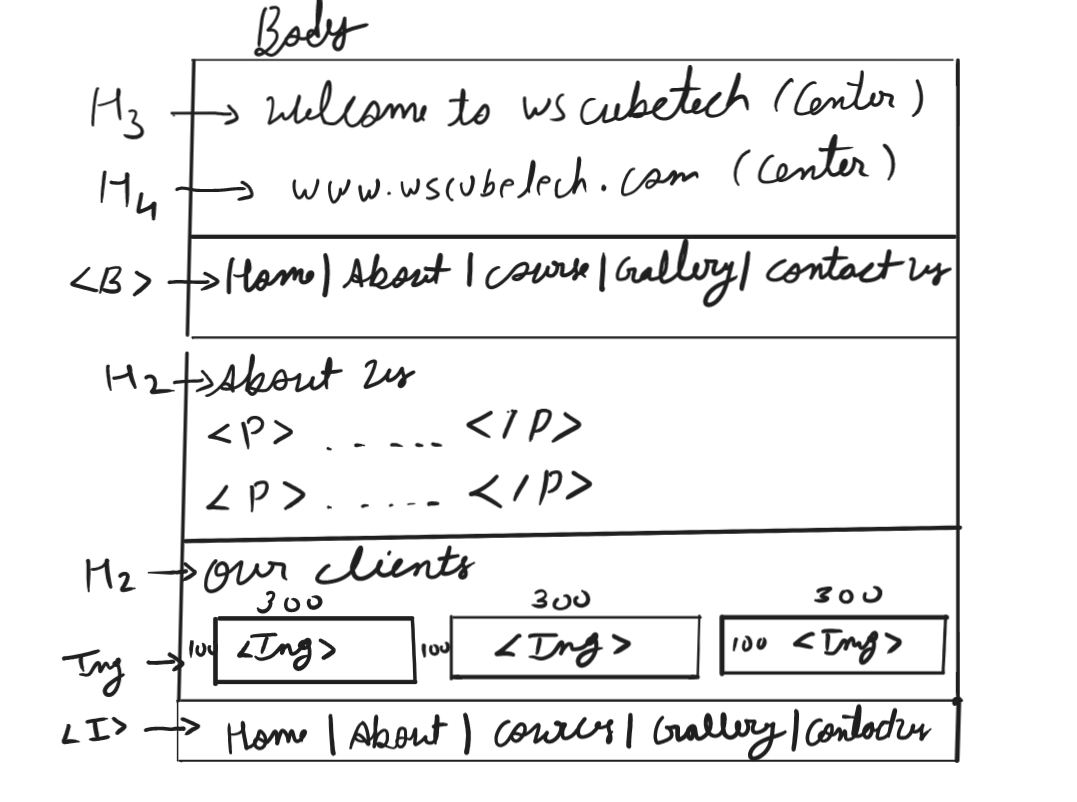 Body
H3 → Welcome to ws cubetech (Center)
H4 → www.wscubetech.com (Center)
<B> → Home | About | course | Gallery | contact us
H2 → About us
<P> . - - - - - </P>
<P> . - - - - - </P>
H2 → our clients
300 300 300
Img → 100 <Img> 100 <Img> 100 <Img>
<I> → Home | About | cources | Gallery | Contact us